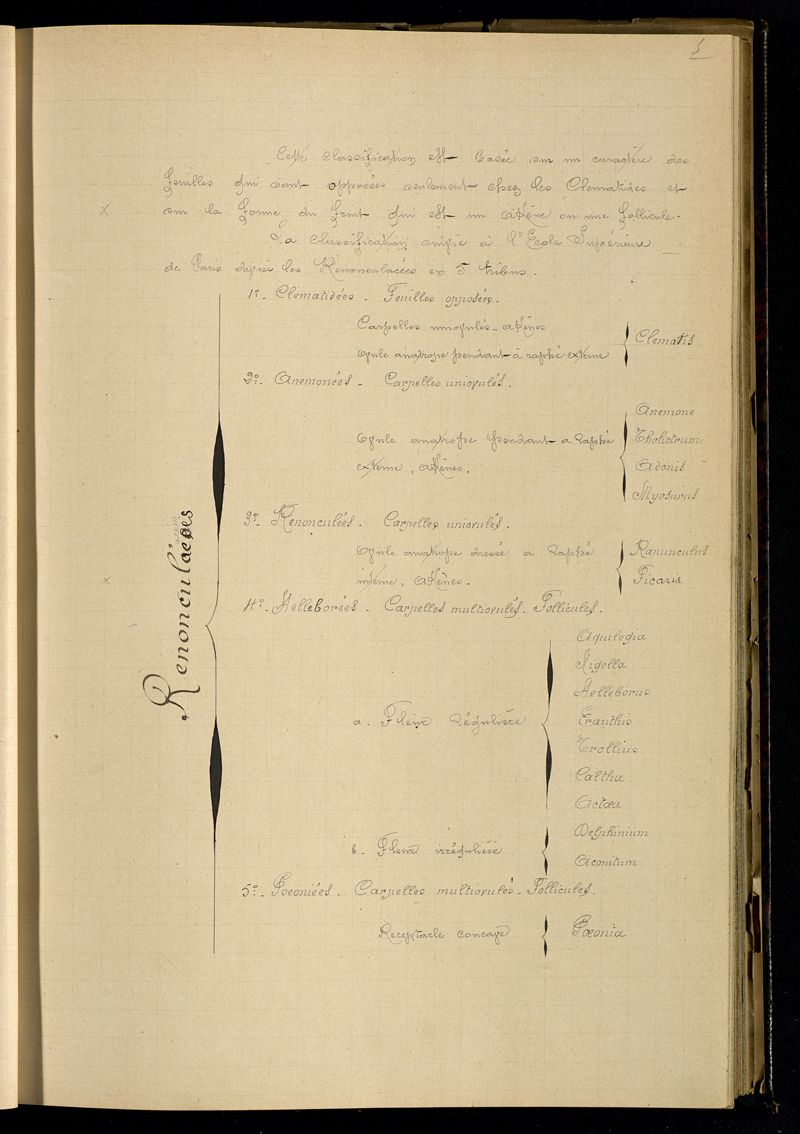 5
Cette classification est basée sur un caractère des
feuilles qui sont opposées seulement chez les Clematides et
x
sur la forme du fruit qui est un akène ou une follicule.
La classification suivie à l'Ecole Supérieure
de Paris divise les Renonculacées en 5 tribus.
Renonculacées
1º- Clematidées - Feuilles opposées.
Carpelles uniovulés - akènes
Ovule anatrope pendant à raphé externe
Clematis
2º- Anemonées - Carpelles uniovulés.
Ovule anatrope pendant à raphé
externe, akènes.
Anemone
Thalictrum
Adonis
Myosurus
3º- Renonculées. Carpelles uniovulés.
Ovule anatrope dressé à raphé
interne, akènes.
Ranunculus
Ficaria
x
4º- Helleborées - Carpelles multiovulés. Follicules.
a. Fleur régulière
Aquilegia
Nigella
Helleborus
Eranthis
Trollius
Caltha
Actœa
b. Fleur irrégulière
Delphinium
Aconitum
5º- Pœoniées. Carpelles multiovulés - Follicules.
Receptacle concave
Pœonia